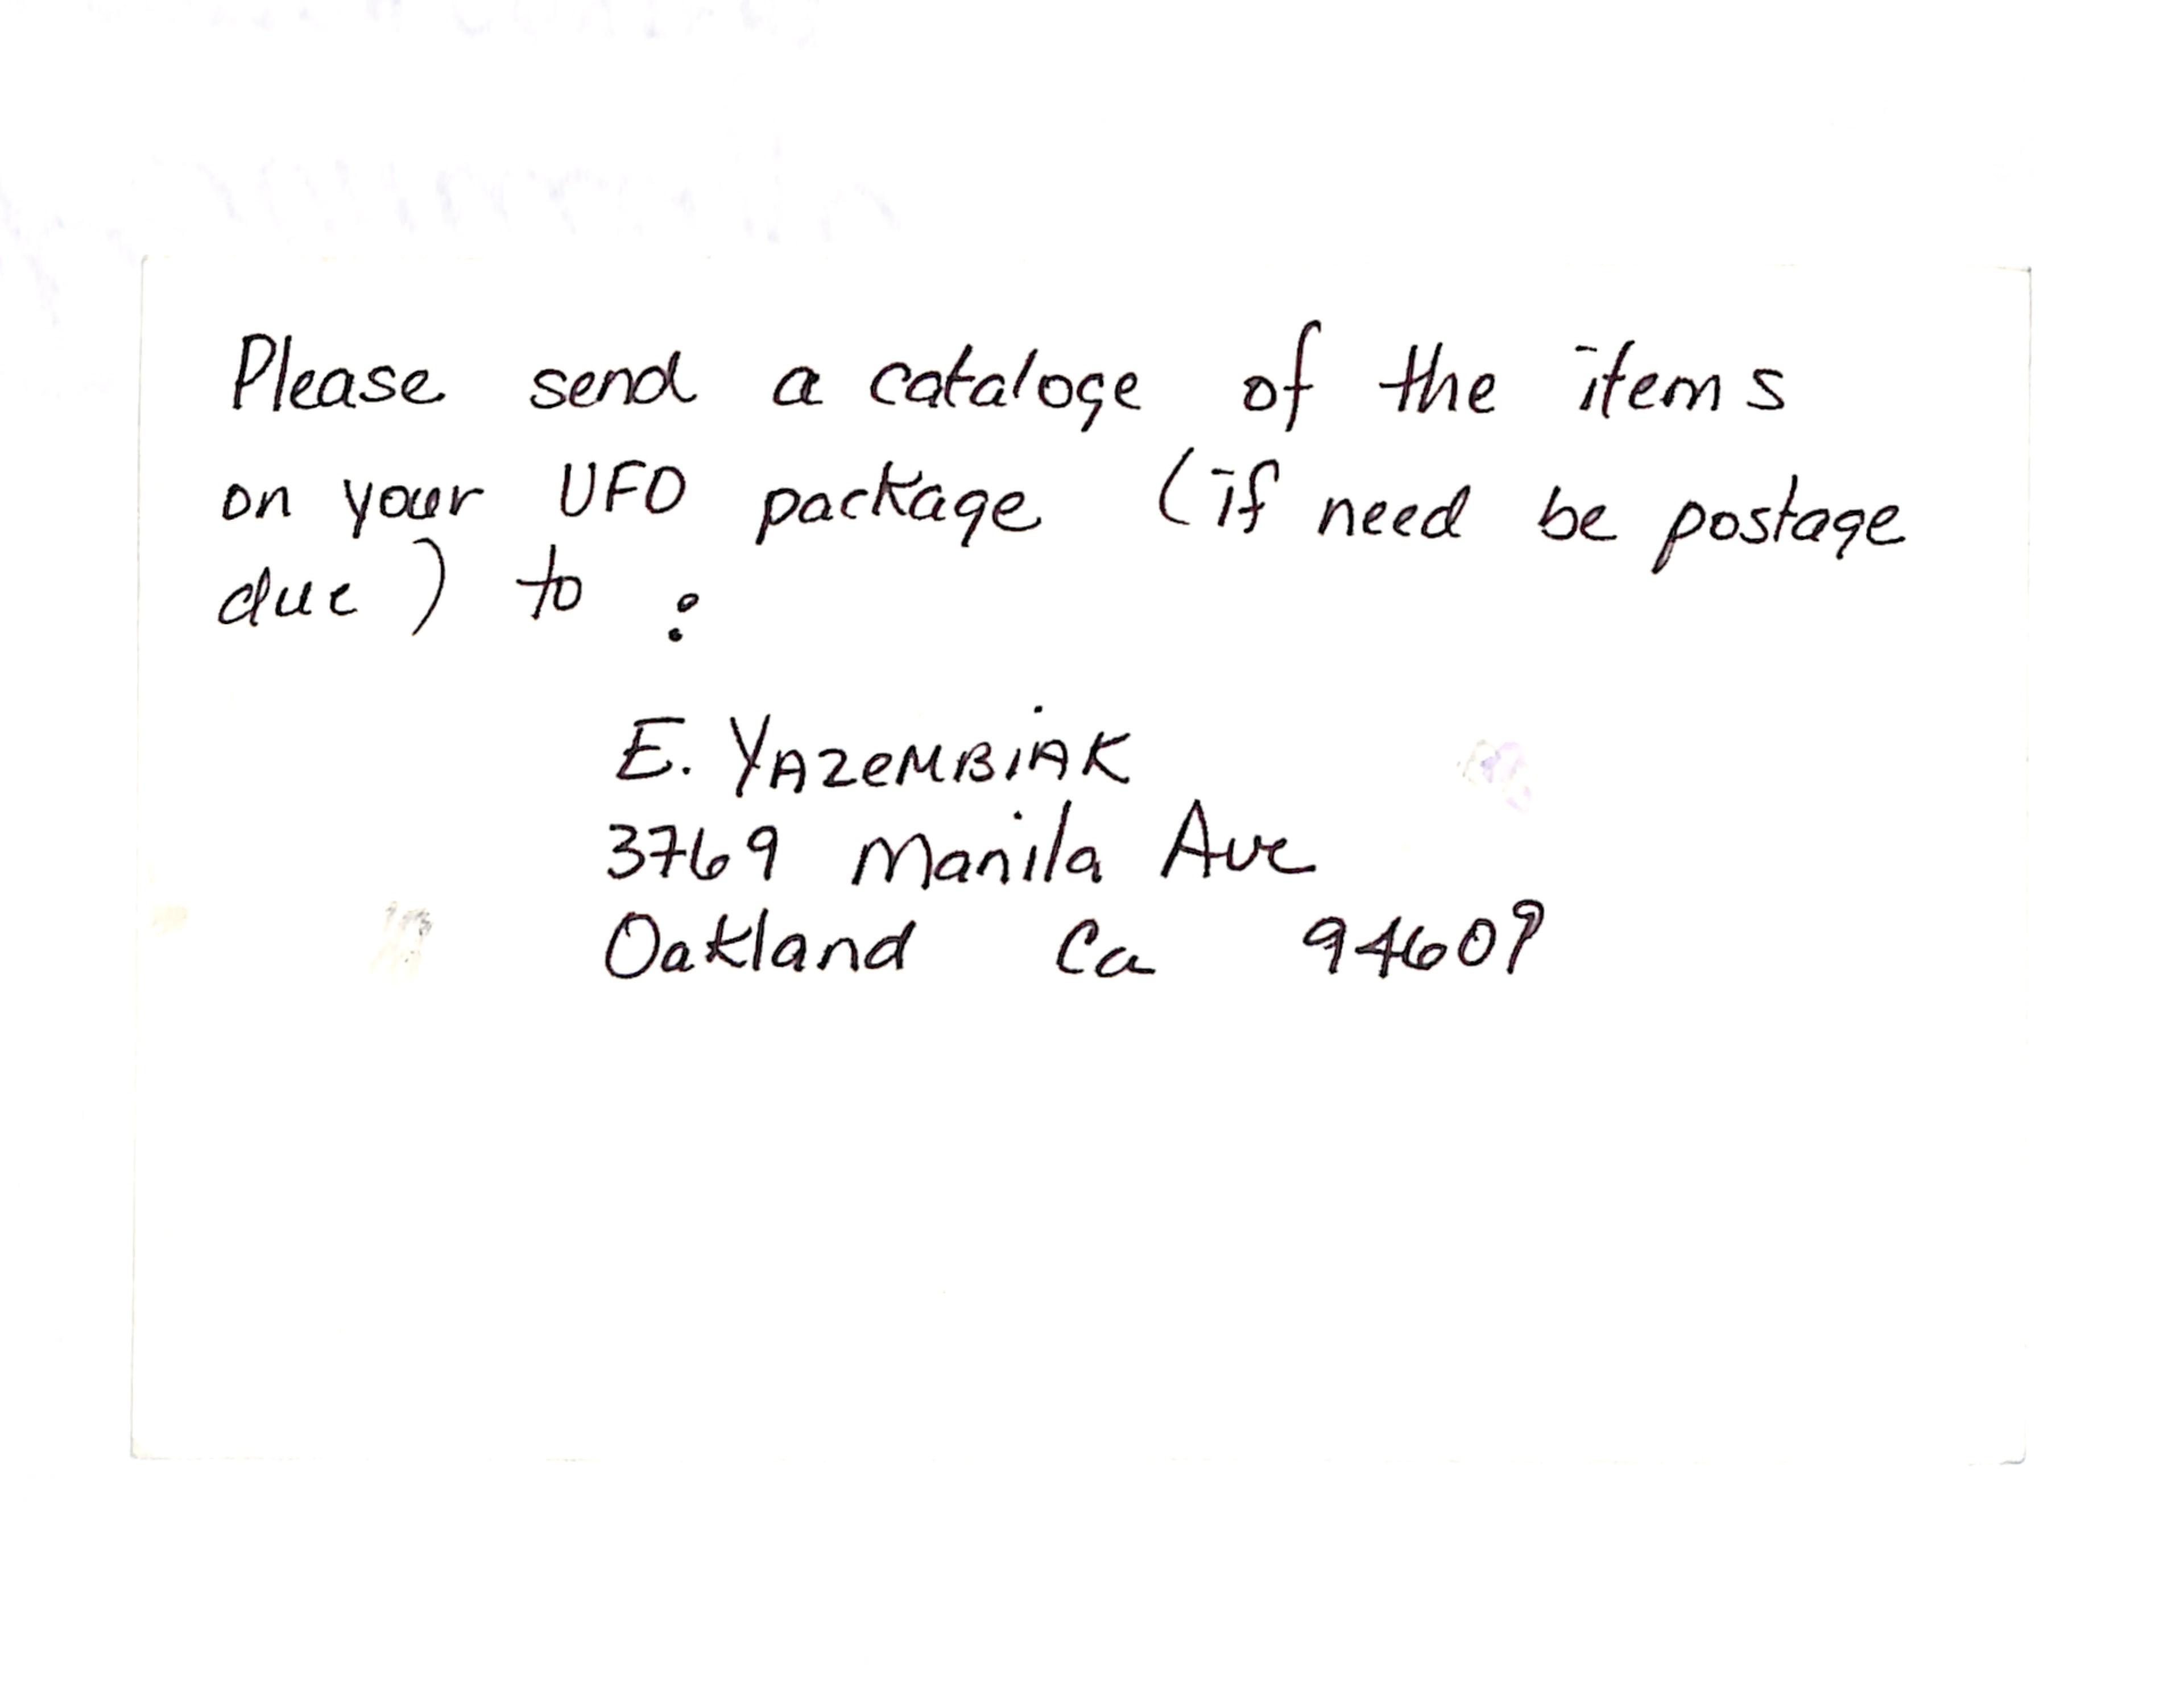 Please send a cataloge of the items
on your UFO package (if need be postage
due) to :
E. YAZEMBIAK
3769 Manila Ave
Oakland Ca 94609